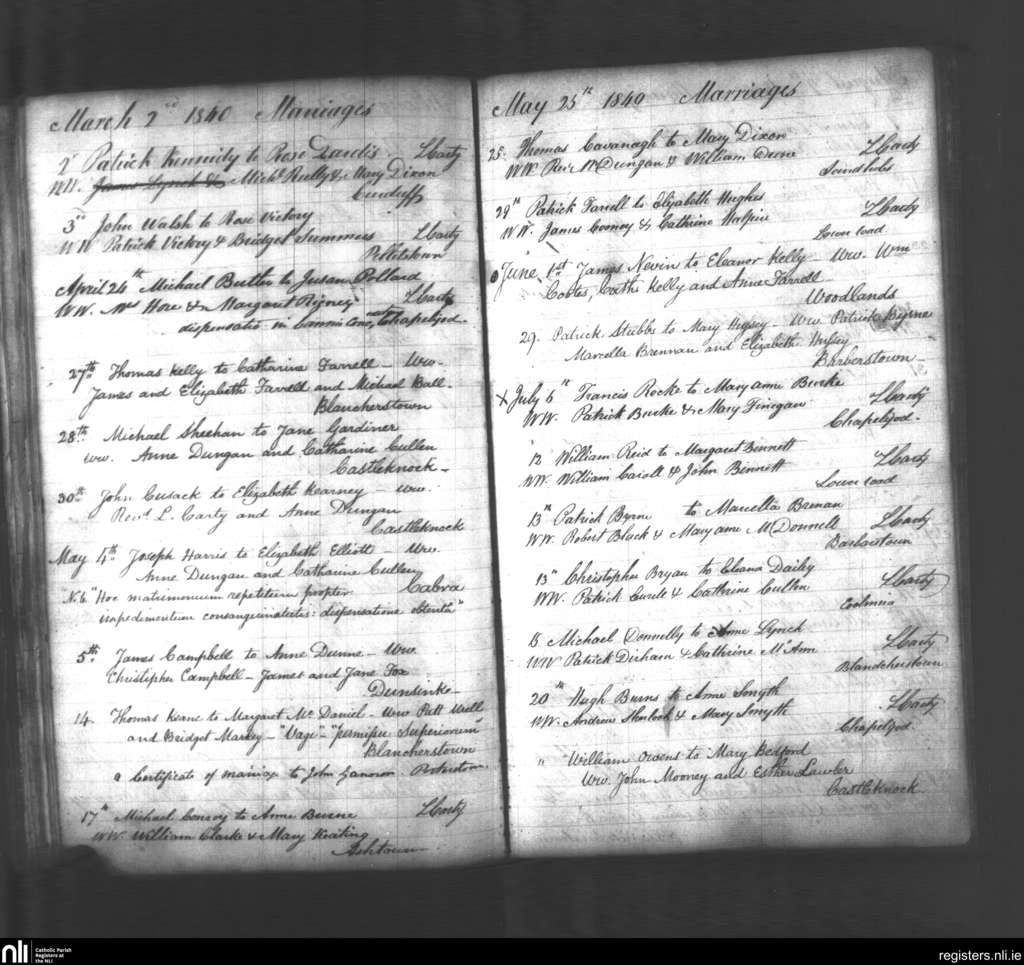 March 2nd 1840 Marriages
2d Patrick Kennidy to Rose Dardis LCarty
WW. James Lynch & Michl Reilly & Mary Dixon
3rd John Walsh to Rose Victory
WW Patrick Victory & Bridget Summers LCarty
Pelletstown
April 26th Michael Butler to Susan Pollard
WW. Hore & Margaret Rigney LCarty
dispensatio in Chapelizod.
27th Thomas Kelly to Catharine Farrell Ww.
James and Elizabeth Farrell and Michael Ball.
Blancherstown
28th Michael Sheehan to Jane Gardiner
ww. Anne Dungan and Catharine Cullen
Castleknock
30th John Cusack to Elizabeth Kearney ww.
Revd. L. Carty and Anne Dungan
Castleknock
May 4th Joseph Harris to Elizabeth Elliott Ww.
Anne Dungan and Catharine Cullen
Cabra
N.b. "Hoc matrimonium repetitum propter
impedimentum consanguinitatis: dispensatione obtenta"
5th James Campbell to Anne Dunne Ww
Christopher Campbell James and Jane Fox
Dunsinke
14. Thomas Keane to Margaret Mc Daniel Ww Patt
and Bridget "Vagi" permissu Superiorum
Blancherstown
a Certificate of marriage to John Gannon.
17th Michael Conroy to Anne Burne LCarty
WW. William Clarke & Mary Keating
Ashtown
May 25th 1840 Marriages
25. Thomas Cavanagh to Mary Dixon
WW Dungan & William Dune LCarty
29th Patrick Farrell to Elizabeth Hughes
WW. James Cooney & Cathrine Halpin LCarty
Lower road
June 1st James Nevin to Eleanor Kelly Ww. Wm
Coates, Cathe Kelly and Anne Farrell
Woodlands
29. Patrick Stubbs to Mary Hussey Ww Patrick Byrne
Marcella Brennan and Elizabeth Hussey
Barberstown
X July 6th Francis Rorke to Maryanne Burke
WW. Patrick Burke & Mary Finegan LCarty
Chapelizod.
12 William Reid to Margaret Bennett
WW. William Caroll & John Bennett LCarty
Lower road
13th Patrick Byrne to Marcella Brenan
WW. Robert Black & Maryanne McDonnell LCarty
Barberstown
13" Christopher Bryan to Eleanor Dailey
WW. Patrick & Cathrine Cullen LCarty
Coolmine
18 Michael Donnelly to Anne Lynch
WW Patrick Dirham & Cathrine McAnn LCarty
Blandcherstown
20th Hugh Burns to Anne Smyth
WW. Andrew Sherlock & Mary Smyth LCarty
Chapelizod.
" William Owens to Mary Bedford
Ww. John Mooney and Esther Lawler
Castleknock
nli
Catholic Parish
Registers at
the NLI
registers.nli.ie